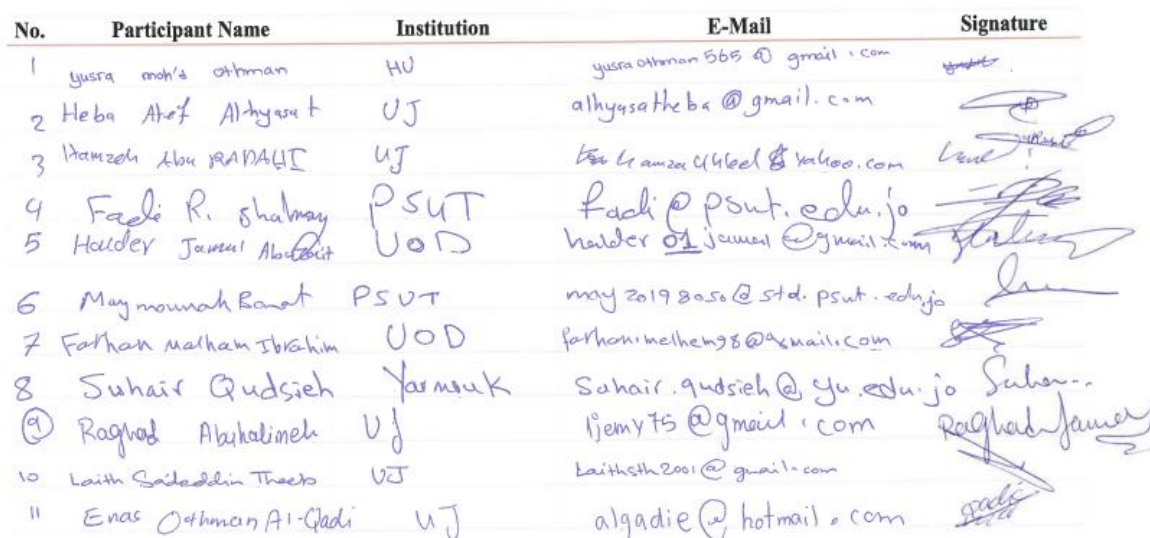 No. Participant Name Institution E-Mail Signature
1 yusra moh'd othman HU yusraothman565@gmail.com
2 Heba Atef Al-hyasat UJ alhyasatheba@gmail.com
3 Hamzeh Abu RADAHI UJ @yahoo.com
4 Fadi R. PSUT fadi@psut.edu.jo
5 Haider Jamal UOD haider01jamal@gmail.com
6 Maymounah Banat PSUT may20198050@std.psut.edu.jo
7 Farhan Malham Ibrahim UOD farhan.melhem98@gmail.com
8 Suhair Qudsieh Yarmouk Suhair.qudsieh@yu.edu.jo
9 Raghad Abuhalimeh UJ ljemy75@gmail.com Raghad
10 Laith UJ Laithsth2001@gmail.com
11 Enas Othman Al-Qadi UJ alqadie@hotmail.com